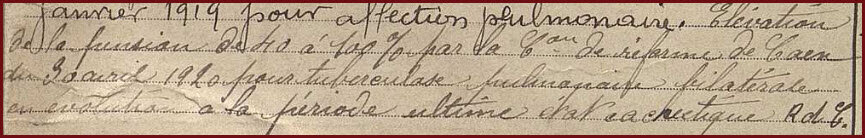 janvier 1919 pour affection pulmonaire. Élévation
de la pension de 40 à 100% par la Con de réforme de Caen
du 30 avril 1920 pour tuberculose pulmonaire bilatérale
en évolution à la période ultime état cachectique R d C.